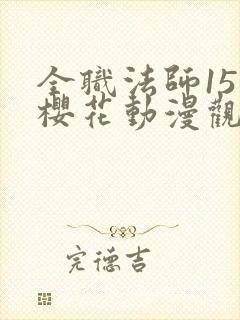 全職法師15
櫻花動漫觀
完德吉